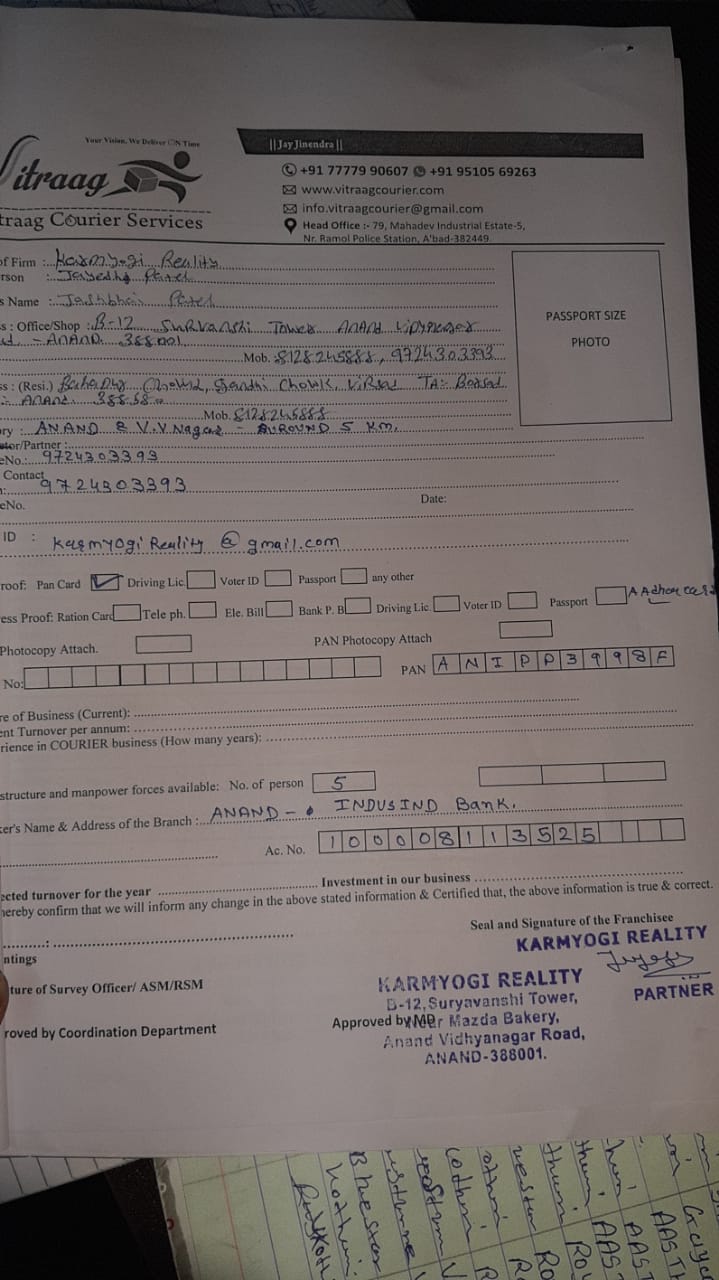 Your Vision, We Deliver ON Time
||Jay Jinendra||
Vitraag
traag Courier Services
+91 77779 90607 +91 95105 69263
www.vitraagcourier.com
info.vitraagcourier@gmail.com
Head Office :- 79, Mahadev Industrial Estate-5,
Nr. Ramol Police Station, A'bad-382449.
of Firm : Karmyogi Reality
rson : Jayesh Patel
s Name : Jashbhai Patel
PASSPORT SIZE
PHOTO
s : Office/Shop : B-12 Survanshi Tower Anand Vidynagar
d - ANAND. 388001
Mob. 8128245888, 9724303393
ss : (Resi.) Chowk, Gandhi Chowk, Virsad TA:- Borsad
: Anand. 38858
Mob. 8128245888
ry : ANAND & V.V.Nagar - AUROUND 5 Km.
ator/Partner :
eNo.: 9724303393
Contact
: 9724303393
eNo.
Date:
ID : Karmyogi Reality @ gmail.com
roof: Pan Card Driving Lic. Voter ID Passport any other
ess Proof: Ration Card Tele ph. Ele. Bill Bank P. B Driving Lic. Voter ID Passport AAdhar card
Photocopy Attach. PAN Photocopy Attach
No: PAN ANIPP3998F
re of Business (Current):
ent Turnover per annum:
rience in COURIER business (How many years):
structure and manpower forces available: No. of person 5
ker's Name & Address of the Branch : ANAND - INDUSIND Bank.
Ac. No. 100008113525
ected turnover for the year Investment in our business
hereby confirm that we will inform any change in the above stated information & Certified that, the above information is true & correct.
Seal and Signature of the Franchisee
KARMYOGI REALITY
PARTNER
ntings
ture of Survey Officer/ ASM/RSM
roved by Coordination Department
Approved by MD
KARMYOGI REALITY
B-12,Suryavanshi Tower,
Near Mazda Bakery,
Anand Vidhyanagar Road,
ANAND-388001.